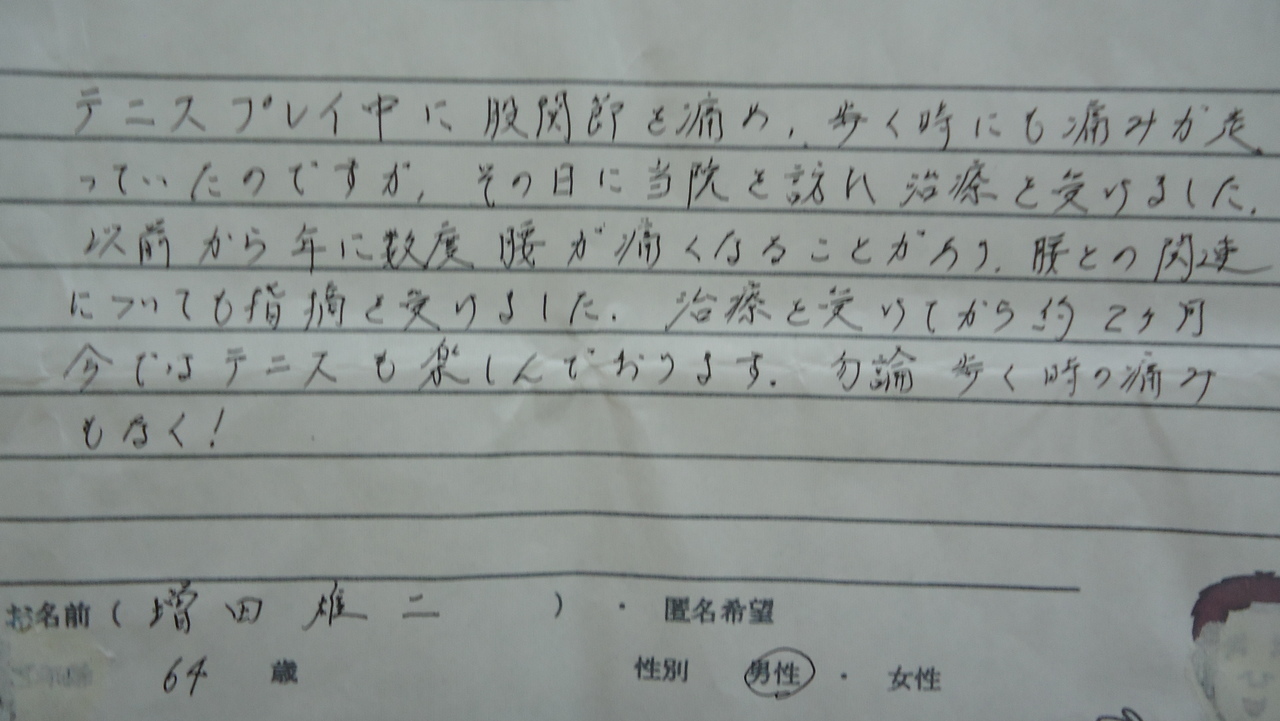 テニスプレイ中に股関節を痛め、歩く時にも痛みが走
っていたのですが、その日に当院を訪れ治療を受けました。
以前から年に数度腰が痛くなることがあり、腰との関連
についても指摘を受けました。治療を受けてから約2ヶ月
今ではテニスも楽しんでおります。勿論歩く時の痛み
もなく!
お名前(増田雄二)・匿名希望
64歳 性別 男性・女性